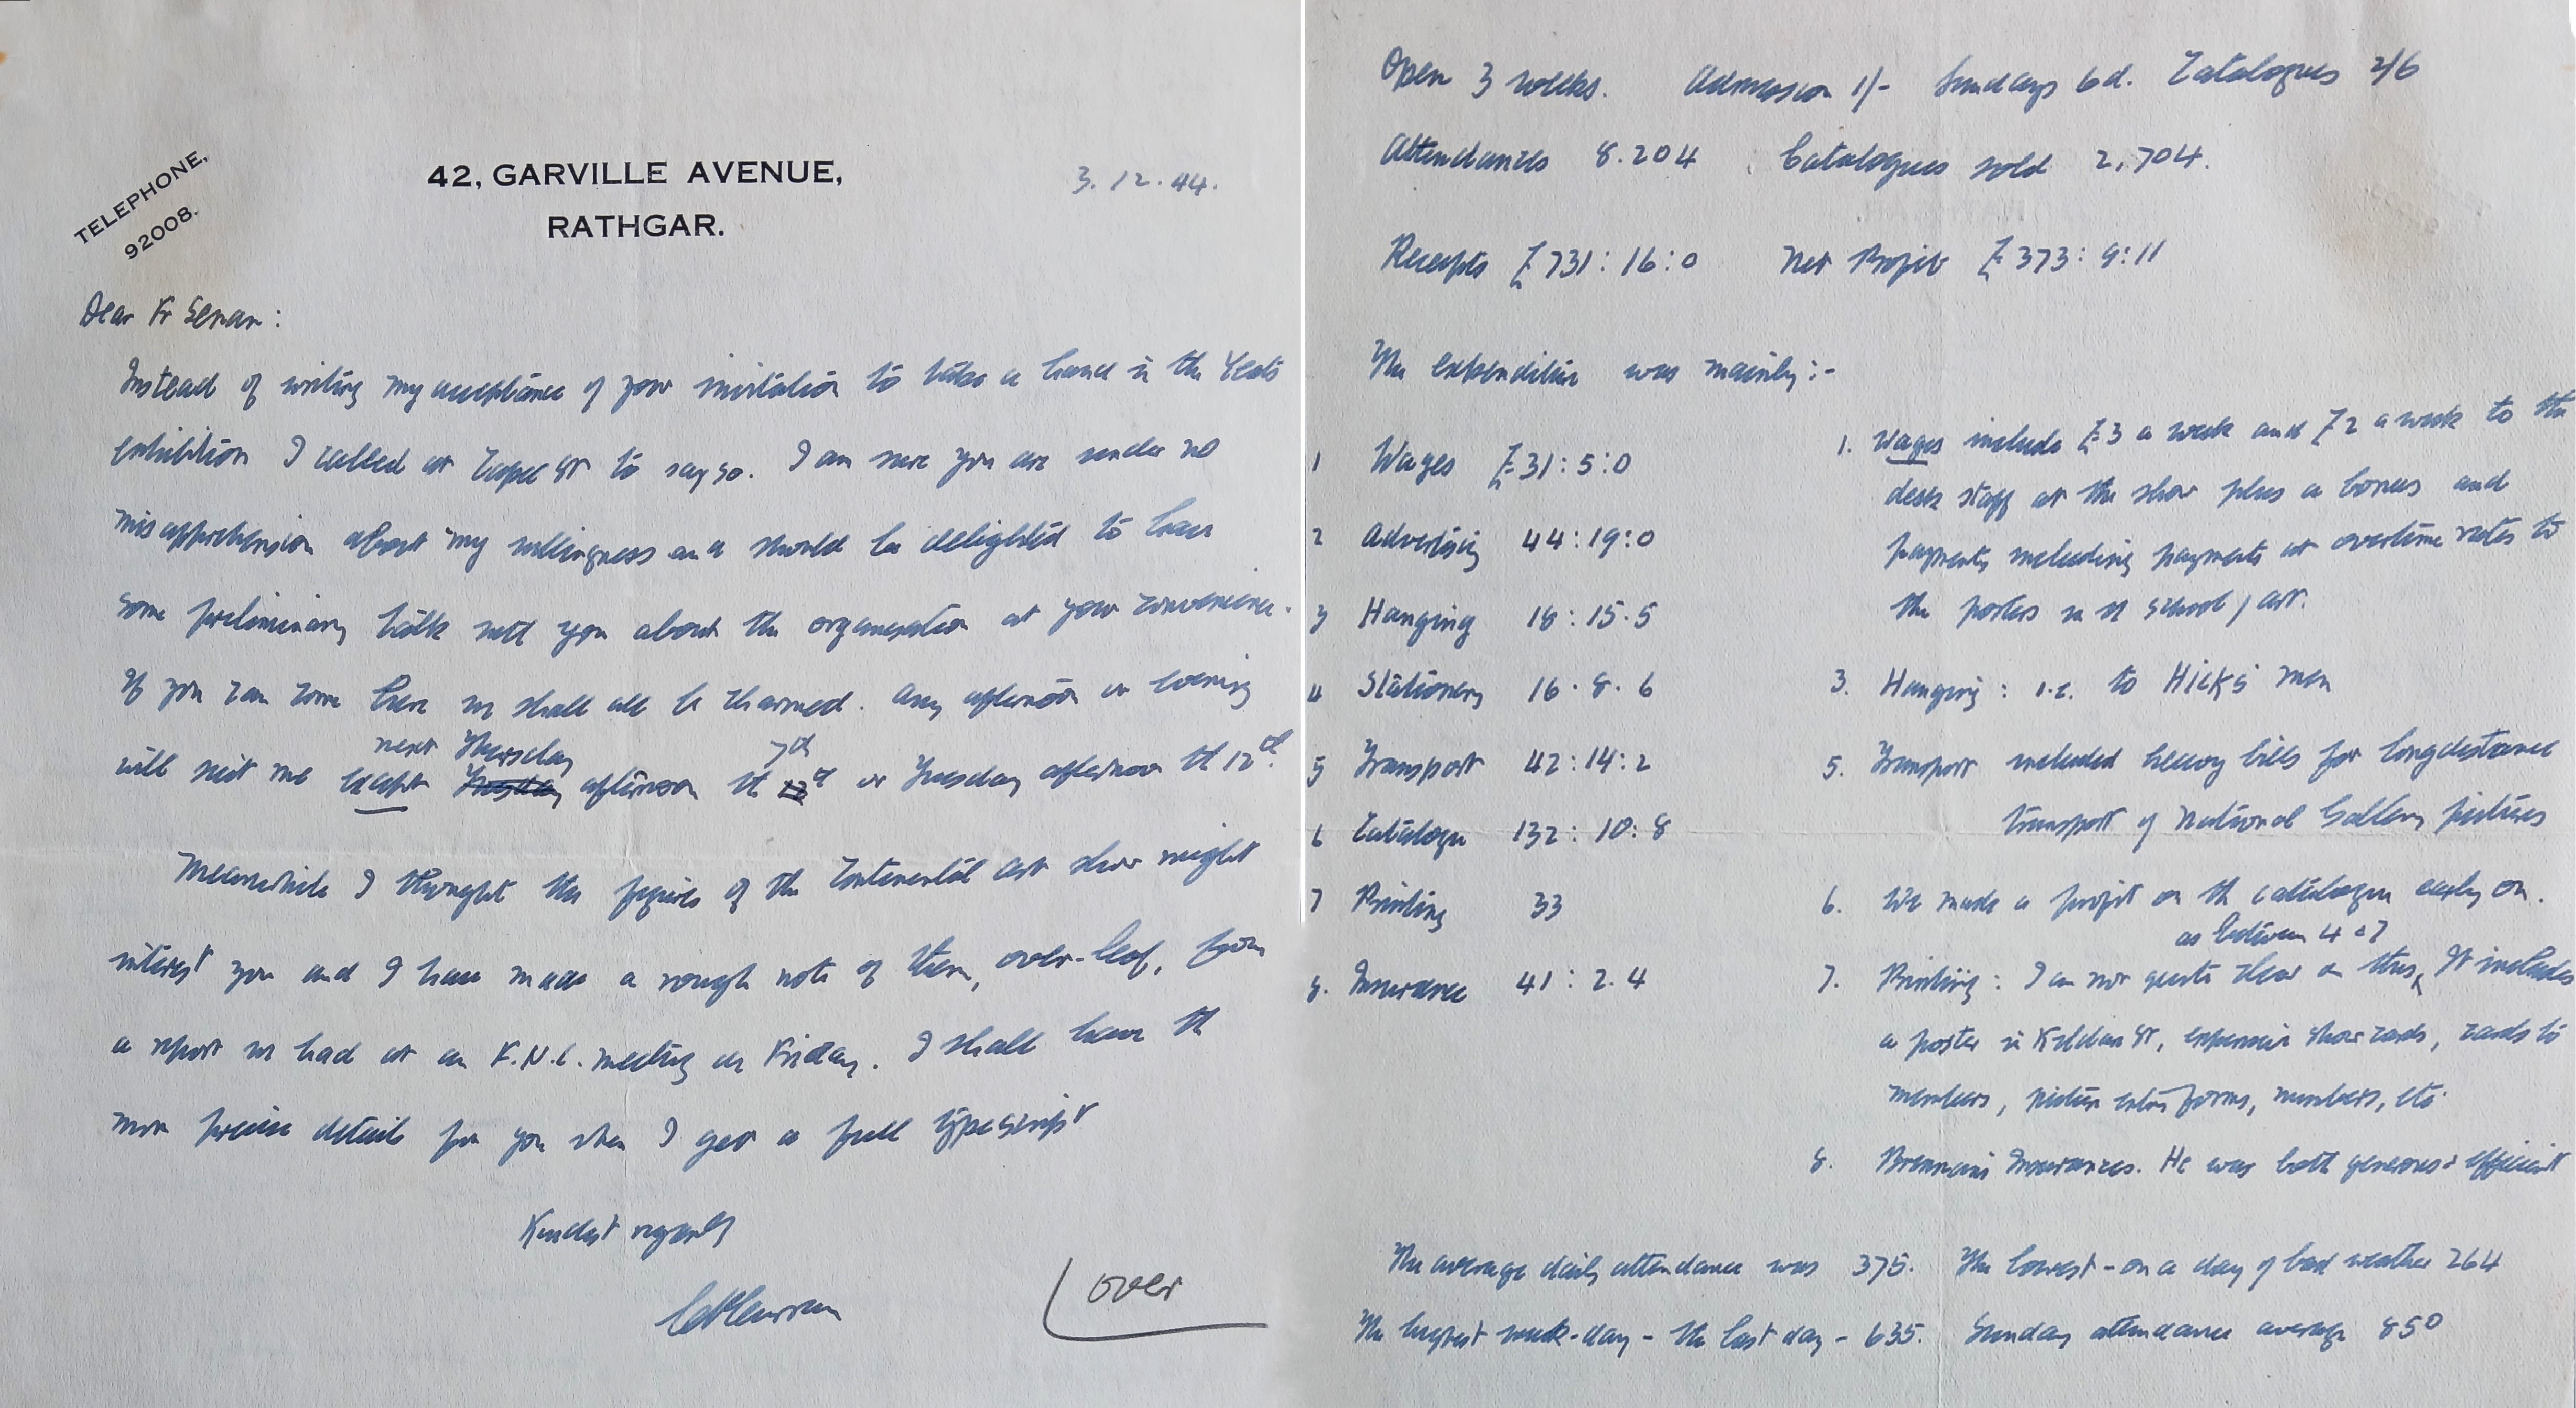 TELEPHONE,
92008.
42, GARVILLE AVENUE,
RATHGAR.
3.12.44.
Dear Fr Senan:
Instead of writing my acceptance of your invitation to take a hand in the Yeats
exhibition I called at Capel St to say so. I am sure you are under no
misapprehension about my willingness and should be delighted to have
some preliminary talk with you about the organisation at your convenience.
If you can come here we shall all be charmed. Any afternoon or evening
next Thursday 7th
will suit me except Tuesday afternoon the 12th or Tuesday afternoon the 12th.
Meanwhile I thought the figures of the Continental art show might
interest you and I have made a rough note of them, over-leaf, from
a report we had at an F.N.C. meeting on Friday. I shall have the
more precise details for you when I get a full typescript
Kindest regards
CP Curran
over
Open 3 weeks. Admission 1/- Sundays 6d. Catalogues 2/6
Attendances 8.204 Catalogues sold 2,704.
Receipts £731:16:0 Net Profit £373:9:11
The expenditure was mainly:-
1 Wages £31:5:0
2 Advertising 44:19:0
3 Hanging 18:15.5
4 Stationery 16.8.6
5 Transport 42:14:2
6 Catalogue 132:10:8
7 Printing 33
8. Insurance 41:2.4
1. Wages include £3 a week and £2 a week to the
desk staff at the show plus a bonus and
payments including payments at overtime rates to
the porters in the School / art.
3. Hanging: i.e. to Hicks' men
5. Transport included heavy bills for long distance
transport of National Gallery pictures
6. We made a profit on the catalogue early on.
as between 4 & 7
7. Printing: I am not quite clear on this, It includes
a poster in Kildare St, expensive show cards, cards to
members, picture entry forms, numbers, etc.
8. Brennan's Insurances. He was both generous & efficient
The average daily attendance was 375. The lowest - on a day of bad weather 264
The highest week-day - the last day - 635. Sunday attendance average 850